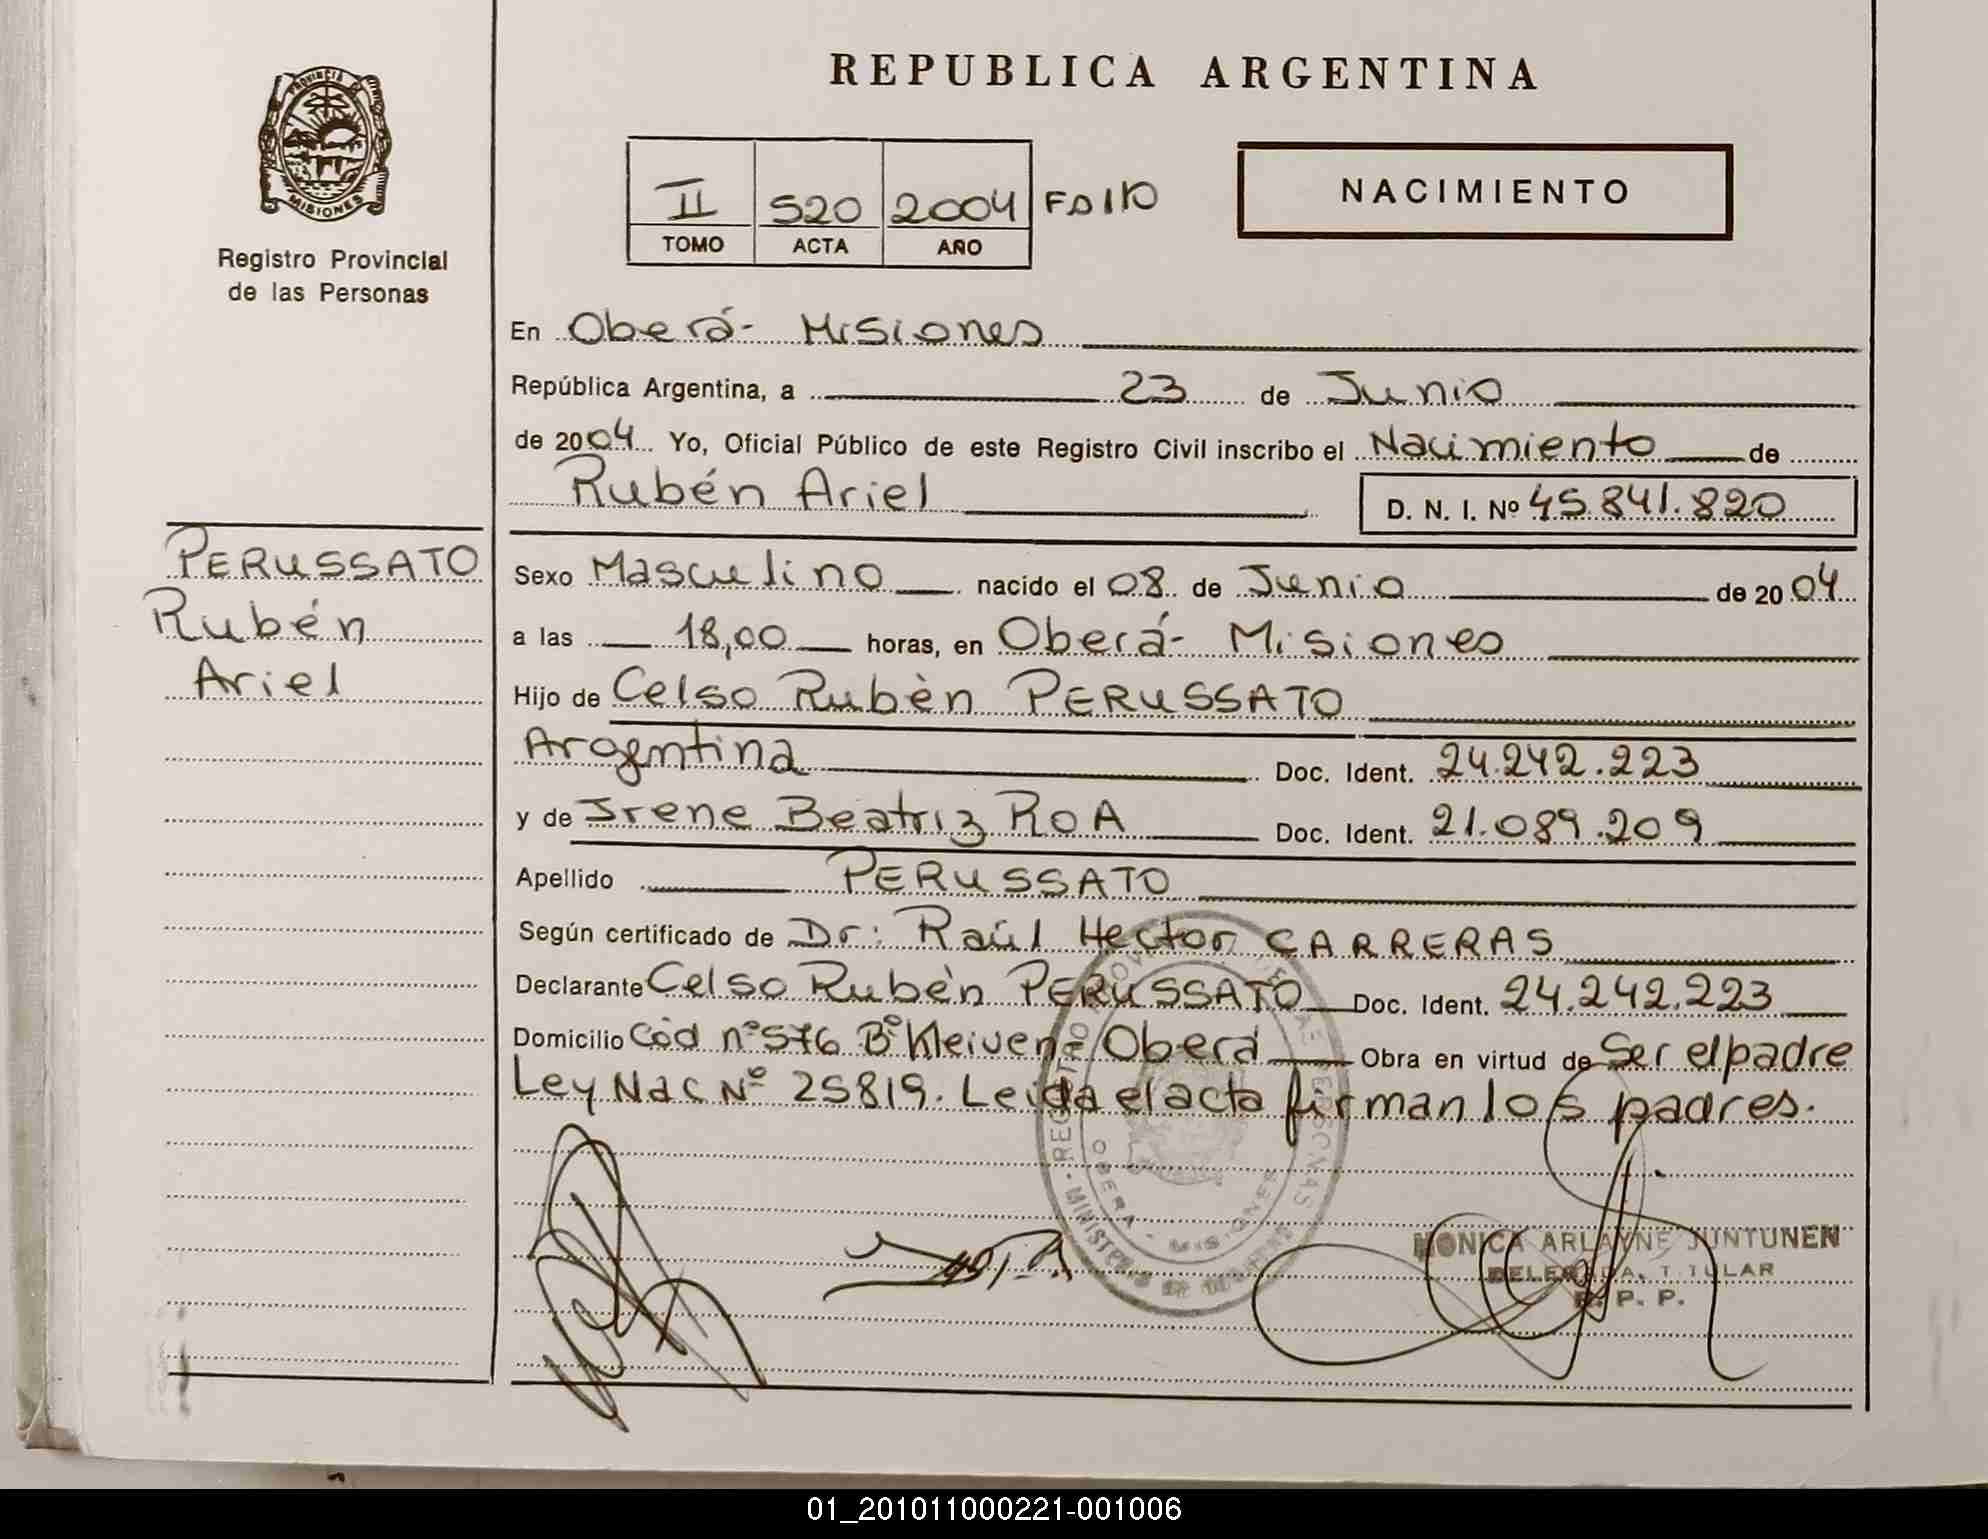 REPUBLICA ARGENTINA
PROVINCIA
MISIONES
Registro Provincial
de las Personas
II 520 2004
TOMO ACTA AÑO
NACIMIENTO
En Oberá- Misiones
República Argentina, a 23 de Junio
de 2004 Yo, Oficial Público de este Registro Civil inscribo el Nacimiento de
Rubén Ariel D. N. I. Nº 45.841.820
PERUSSATO
Rubén
Ariel
Sexo Masculino nacido el 08 de Junio de 2004
a las 18,00 horas, en Oberá- Misiones
Hijo de Celso Rubèn PERUSSATO
Argentina Doc. Ident. 24.242.223
y de Irene Beatriz ROA Doc. Ident. 21.089.209
Apellido PERUSSATO
Según certificado de Dr: Raúl Hector CARRERAS
Declarante Celso Rubèn PERUSSATO Doc. Ident. 24.242.223
Domicilio Cód nº576 Bº Kleiven- Oberá Obra en virtud de Ser el padre
Ley Nac Nº 25819. Leida el acta firman los padres.
OBERA - MISIONES
MONICA ARLAYNE JUNTUNEN
DELEGADA TITULAR
R. P. P.
01_201011000221-001006